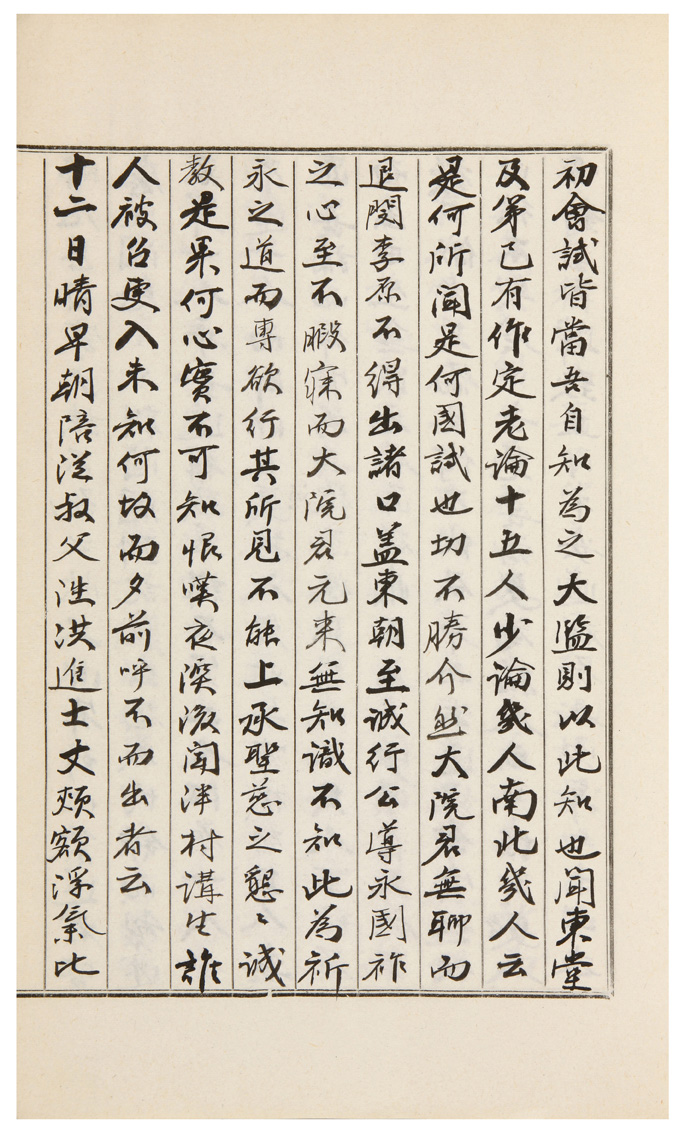 初會試皆當吾自知為之大監則以此知也聞東堂
及第已有作定老論十五人少論幾人南北幾人云
是何所聞是何國試也切不勝介然大院君無聊而
退閔李原不得出諸口盖東朝至誠行公導永國祚
之心至不暇寐而大院君元来無知識不知此為祈
永之道而專欲行其所見不能上承聖慈之懇〻誠
教是果何心實不可知恨嘆夜深後聞泮村講生誰
人被召更入未知何故而夕前呼不而出者云
十二日晴早朝陪從叔父往洪進士丈頰額浮氣比